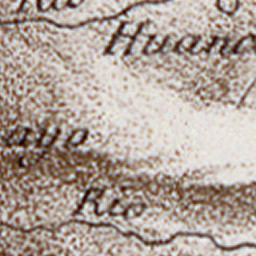 Rio
Huanc
ayo
Rio